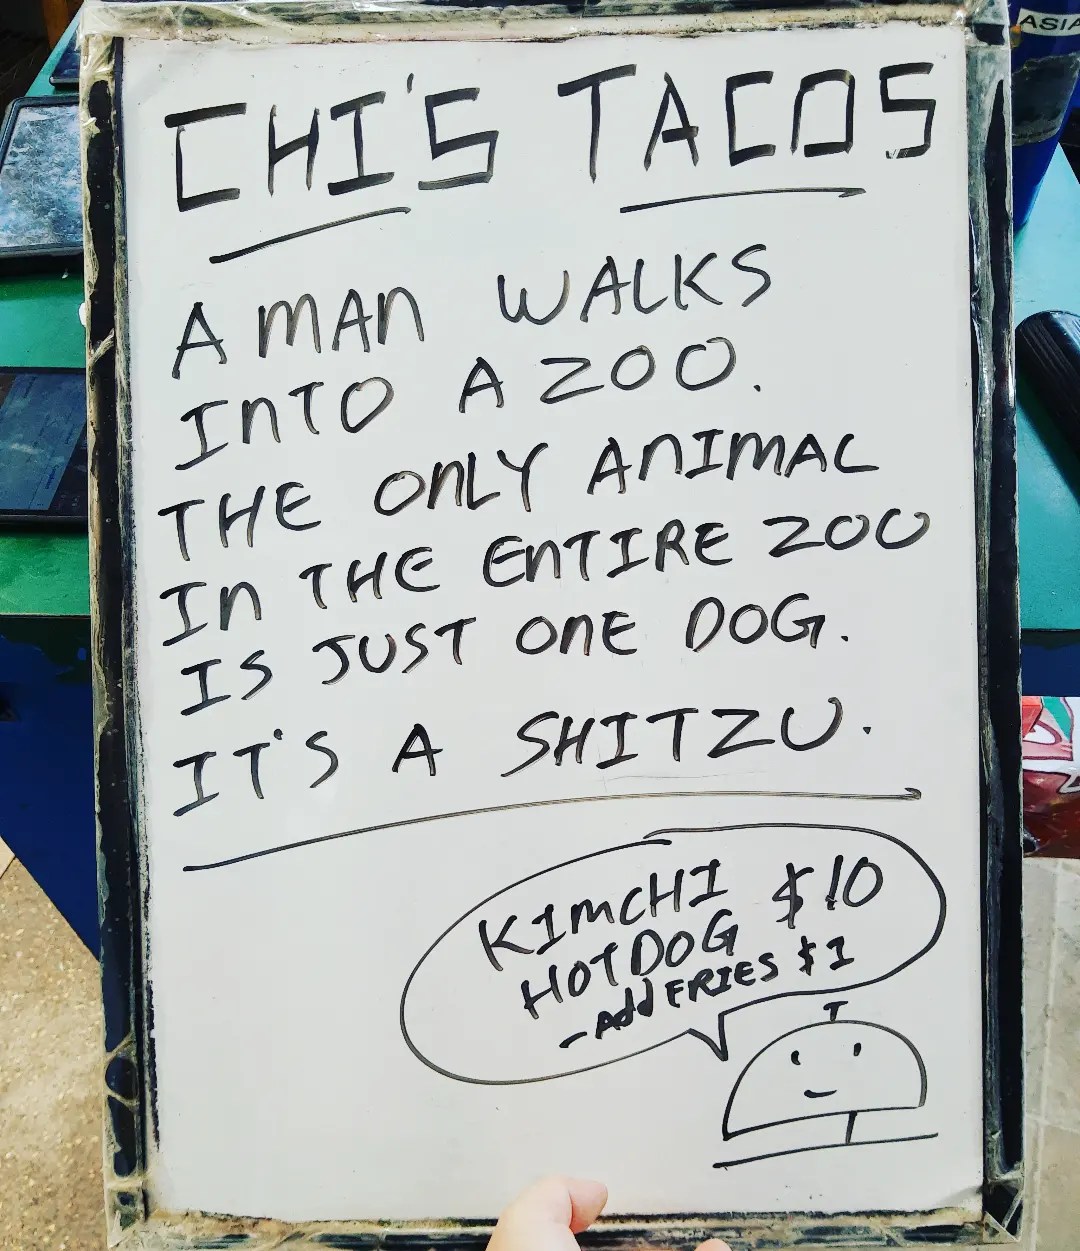 CHI'S TACOS
A MAN WALKS
INTO A ZOO.
THE ONLY ANIMAL
IN THE ENTIRE ZOO
IS JUST ONE DOG.
IT'S A SHITZU.
KIMCHI $10
HOTDOG
-Add FRIES $1
ASIA